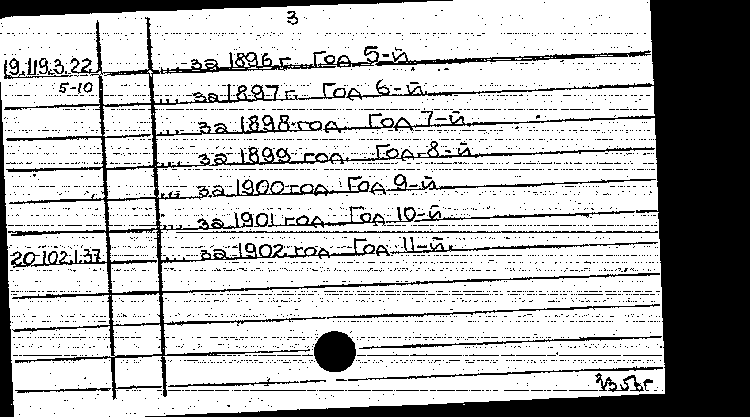 3
19.119.3.22 ... за 1896 г. Год 5-й
5-10 ... за 1897 г. Год 6-й.
... за 1898 год. Год 7-й.
... за 1899 год. Год 8-й.
... за 1900 год. Год 9-й
... за 1901 год Год 10-й
20.102.1.37 ... за 1902 год Год 11-й.